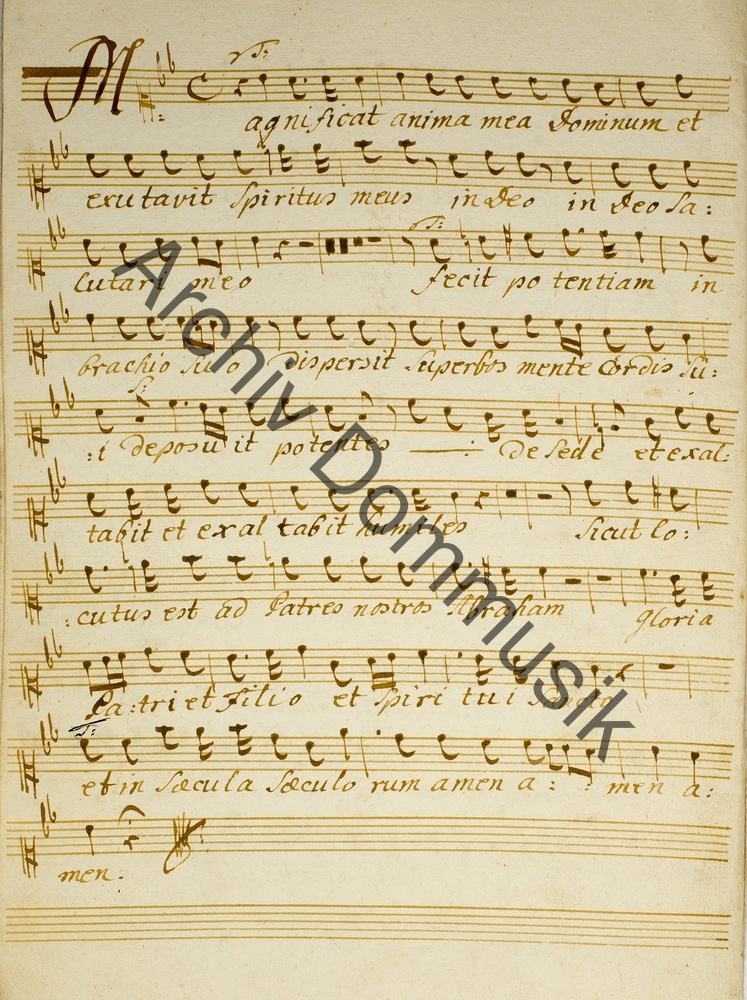 T:
Magnificat anima mea Dominum et
exutavit Spiritus meus in Deo in Deo Sa:
T:
lutari meo fecit potentiam in
brachio Suo dispersit Superbos mente Cordis Su:
S:
:i deposuit potentes —: de Sede et exal
tabit et exaltabit humiles Sicut lo:
:cutus est ad Patres nostros Abraham Gloria
Pa:tri et Filio et Spiritui Sancto
T:
et in Sæcula Sæculorum amen a: :men a:
men.
Archiv Dommusik